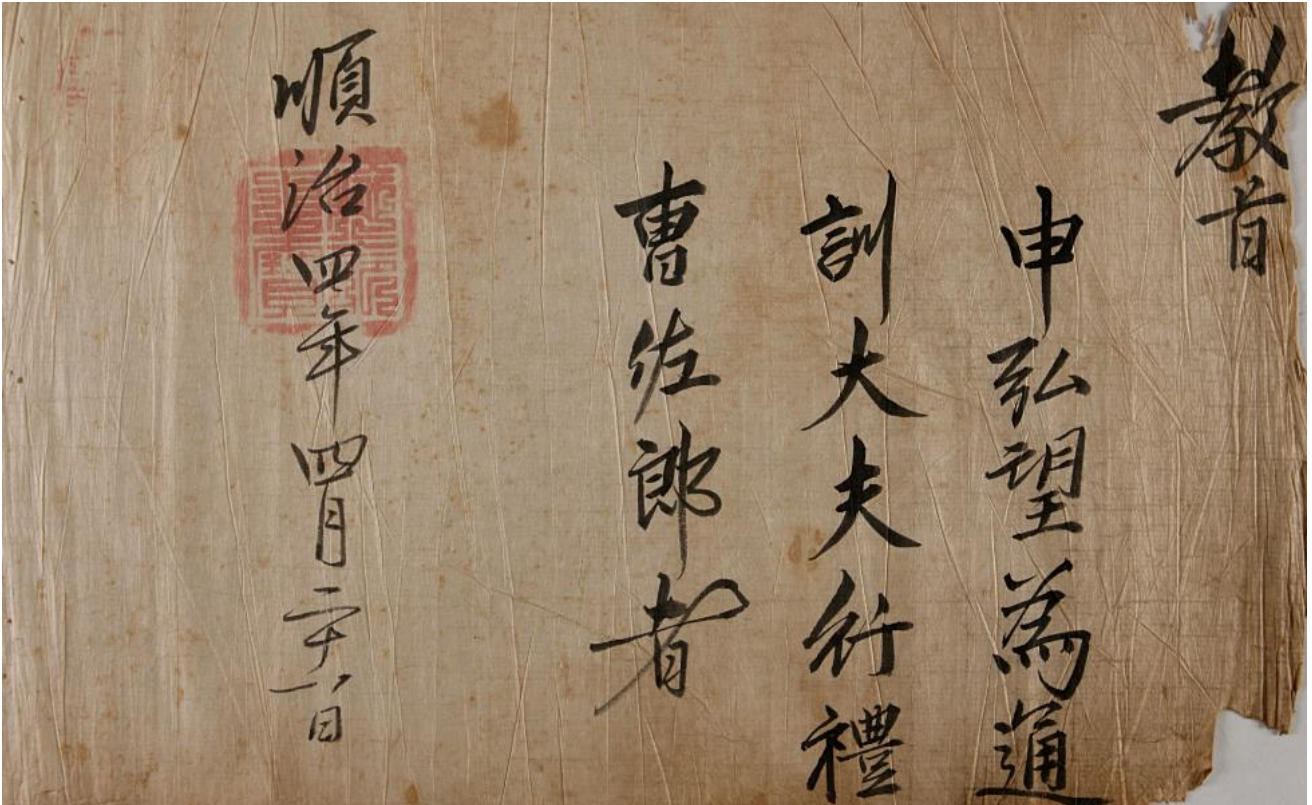 教旨
申弘望為通
訓大夫行禮
曺佐郎者
順治四年四月二十日